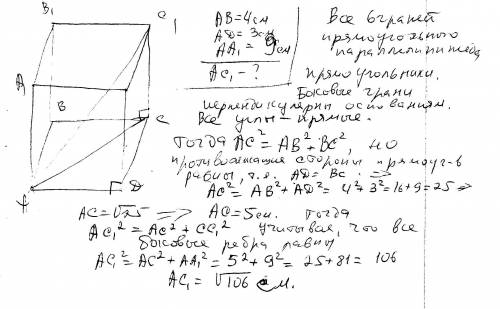 B₁
C₁
A
B
C
A
D
AB=4см
AD=3см
AA₁=9см
AC₁-?
Все 6 граней
прямоугольного
параллелипипеда
прямоугольники.
Боковые грани
перпендикулярны основаниям.
Все углы-прямые.
Тогда AC²=AB²+BC², но
противолежащие стороны прямоуг-в
равны, т.е. AD=BC. =>
AC²=AB²+AD²=4²+3²=16+9=25=>
AC=√25 => AC=5см. тогда
AC₁²=AC²+CC₁² учитывая, что все
боковые ребра равны
AC₁²=AC²+AA₁²=5²+9²=25+81=106
AC₁=√106 см.